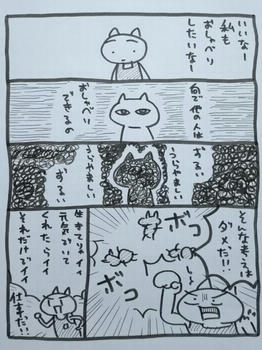 いいなー
私も
おしゃべり
したいなー
何で他の人は
おしゃべり
できるの
ずるい
うらやましい
うらやましい
ずるい
そんな考えは
ダメだ!!
ボコ
ボコ
生きてりゃイイ
元気でいて
くれたらイイ
それだけがイイ
仕事だ!!